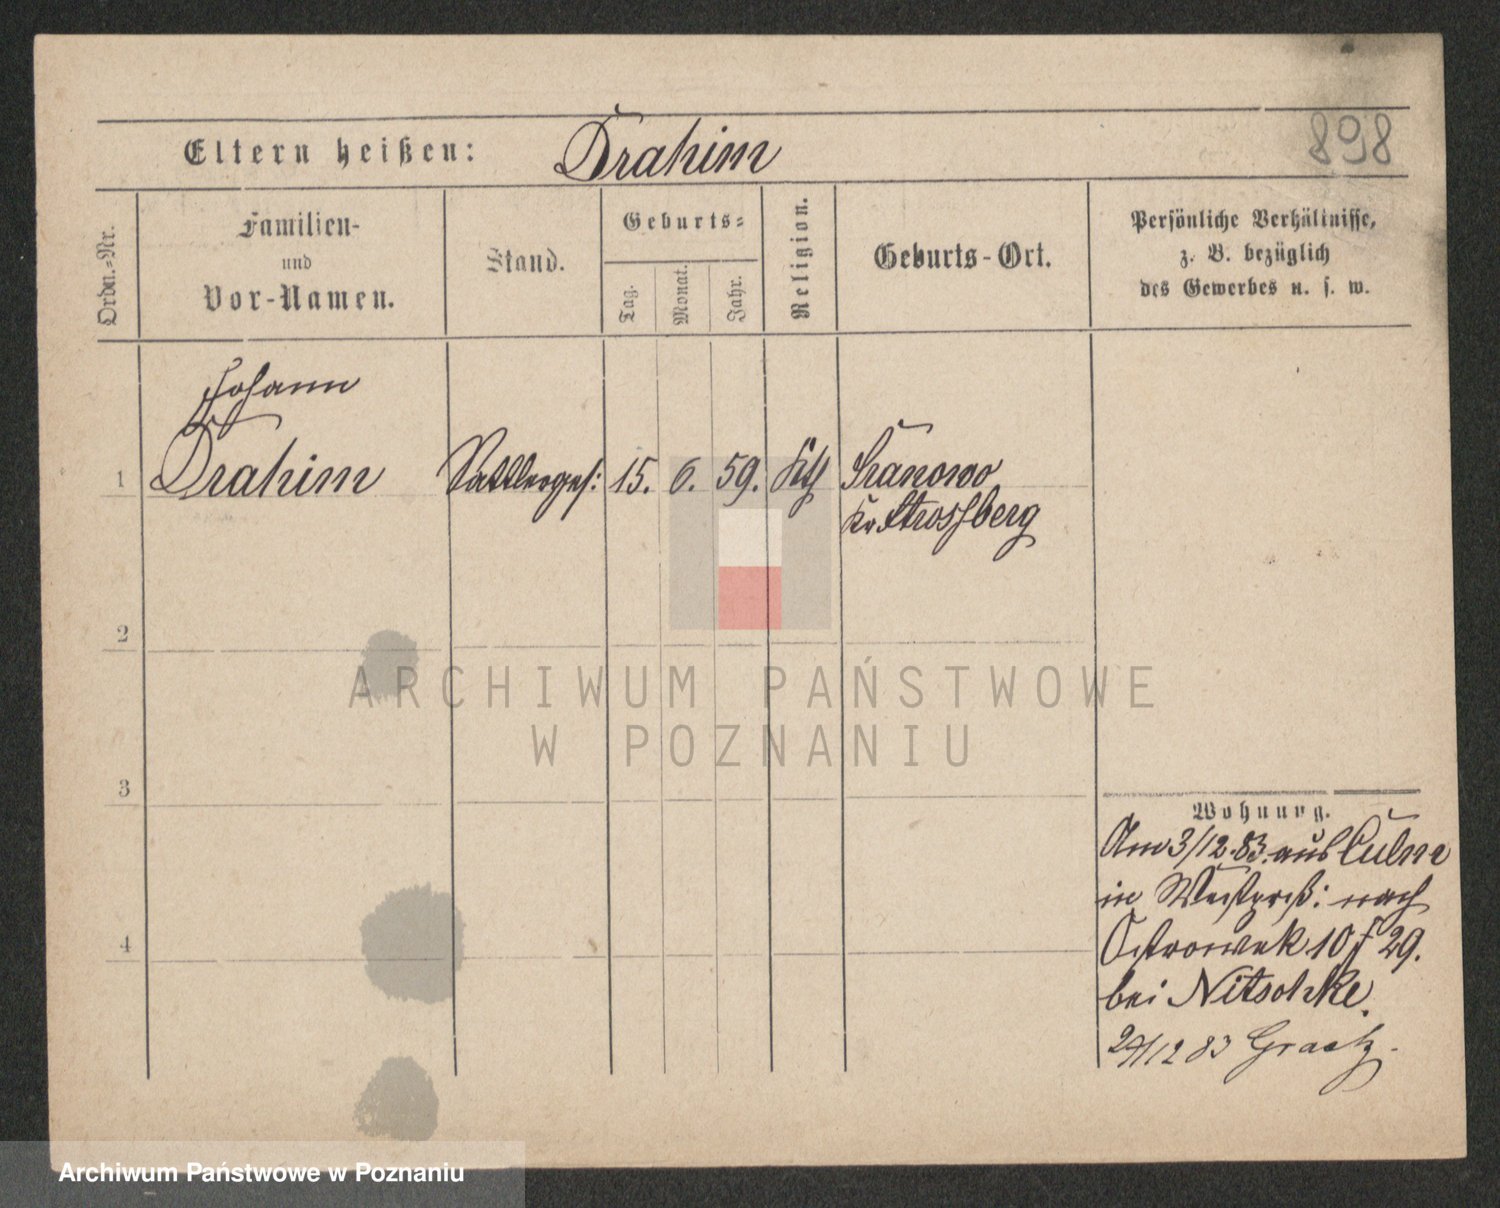 898
Eltern heißen: Drahim
Ordn.-Nr.
Familien-
und
Vor-Namen.
Stand.
Geburts-
Tag.
Monat.
Jahr.
Religion.
Geburts-Ort.
Persönliche Verhältnisse,
z. B. bezüglich
des Gewerbes u. s. w.
Johann
1 Drahim Sattlerges: 15. 6. 59. Kth
Kr Strossberg
2
ARCHIWUM PAŃSTWOWE
W POZNANIU
3
Wohnung.
Am 3/12.83. aus Culm
in Westprß: nach
4
Ostrowek 10 f 29.
bei Nitschke.
12 83 Graetz.
Archiwum Państwowe w Poznaniu